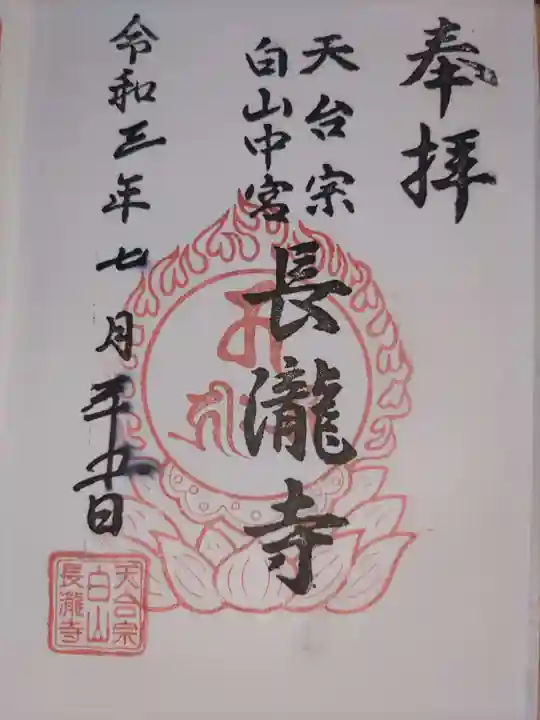 奉拝
天台宗
白山中宮
長瀧寺
令和三年七月
日
天台宗
白山
長瀧寺